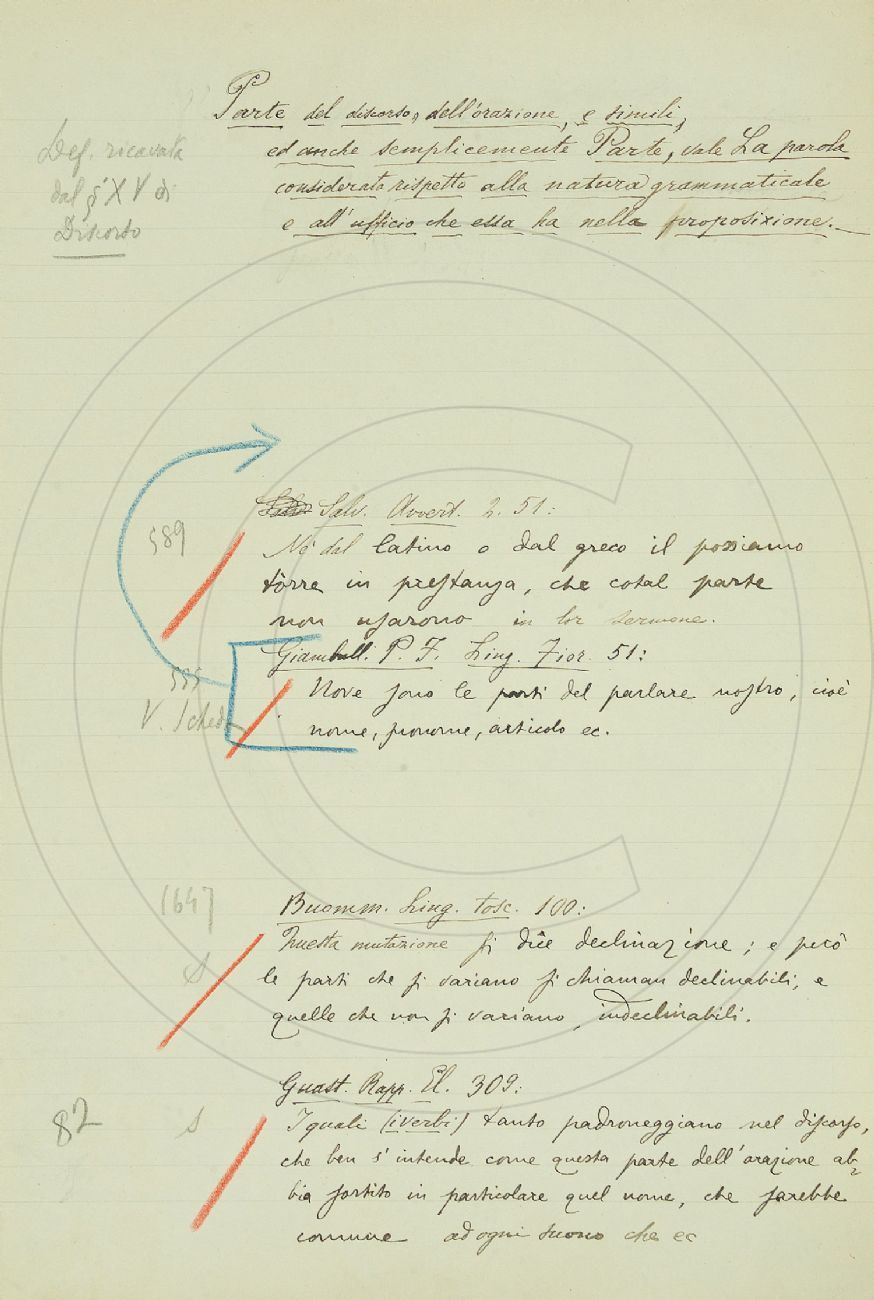 Parte del discorso, dell'orazione, e simili,
ed anche semplicemente Parte, vale La parola
considerata rispetto alla natura grammaticale
e all'ufficio che essa ha nella proposizione.
Def. ricavata
dal § XV di
Discorso
Salv. Avvert. 2. 51:
589
Nè dal latino o dal greco il possiamo
tôrre in prestanza, che cotal parte
non usarono in lor sermone.
Giambull. P. F. Ling. Fior. 51:
Nove sono le parti del parlare nostro, cioè
V. Scheda
nome, pronome, articolo ec.
1647
Buomm. Ling. tosc. 100:
Questa mutazione si dice declinazione; e però
S
le parti che si variano si chiaman declinabili, e
quelle che non si variano, indeclinabili.
Guast. Rapp. El. 309:
82
S
I quali (i verbi) tanto padroneggiano nel discorso,
che ben s'intende come questa parte dell'orazione ab-
bia sortito in particolare quel nome, che sarebbe
comune ad ogni suono che ec